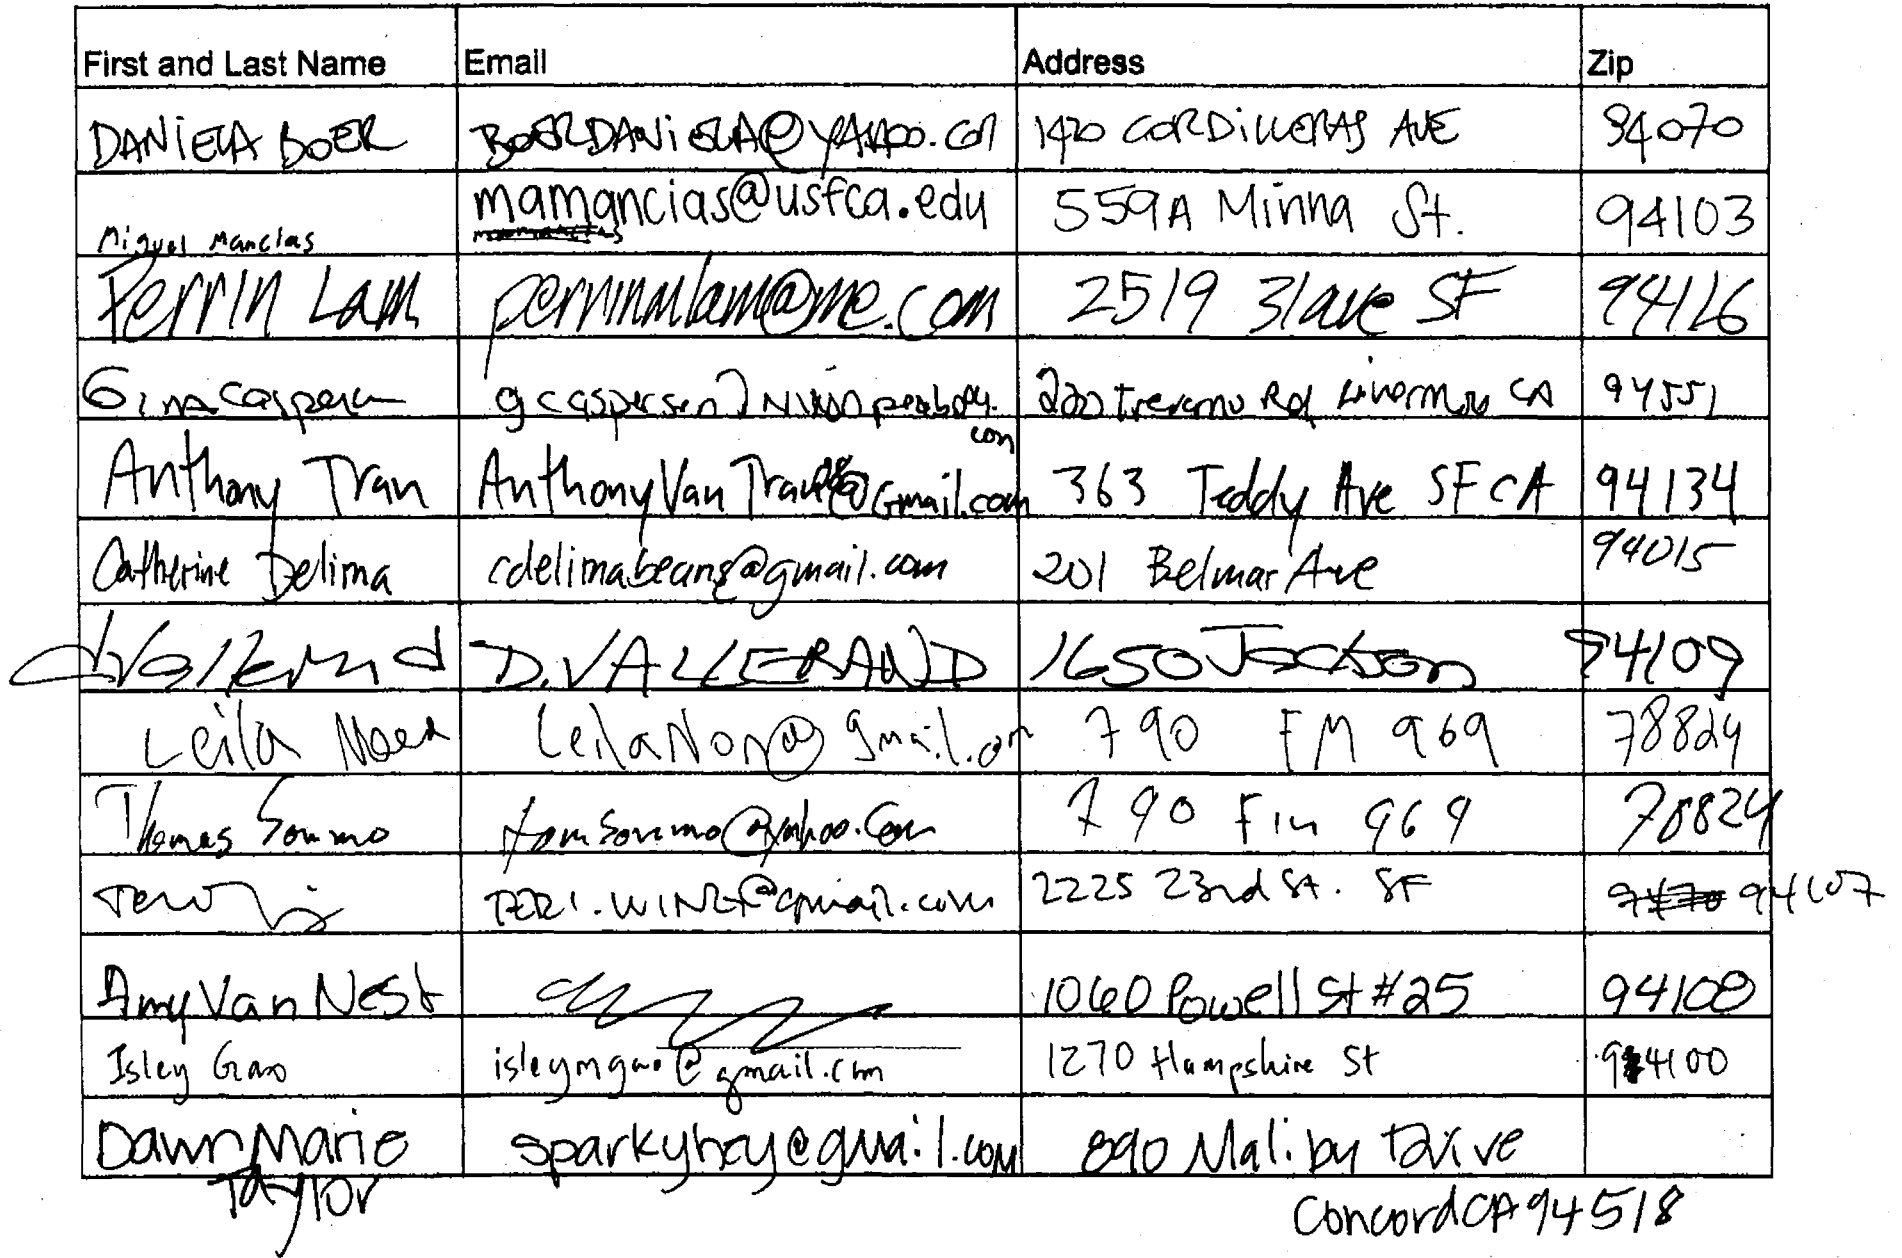 First and Last Name Email Address Zip
DANIELA BOER BOERDANIELA@YAHOO.COM 1420 CORDILLERAS AVE 94070
Miguel Mancias mamancias@usfca.edu 559A Minna St. 94103
Perrin Lam perrinmlam@me.com 2519 31 ave SF 94116
Gina Caspersen Rd Livermore CA 94551
Anthony Tran AnthonyVanTran@Gmail.com 363 Teddy Ave SF CA 94134
Catherine Delima cdelimabeans@gmail.com 201 Belmar Ave 94015
D.VALLERAND 1650 Jackson 94109
Leila 790 FM 969 78824
Thomas Sommo tomsommo@yahoo.com 790 Fm 969 78824
2225 23rd St. SF 94107
Amy Van Nest 1060 Powell St #25 94108
Isley Gao isleymgao@gmail.com 1270 Hampshire St
Dawn Marie sparkyhey@gmail.com 890 Maliby Drive
Taylor Concord CA 94518